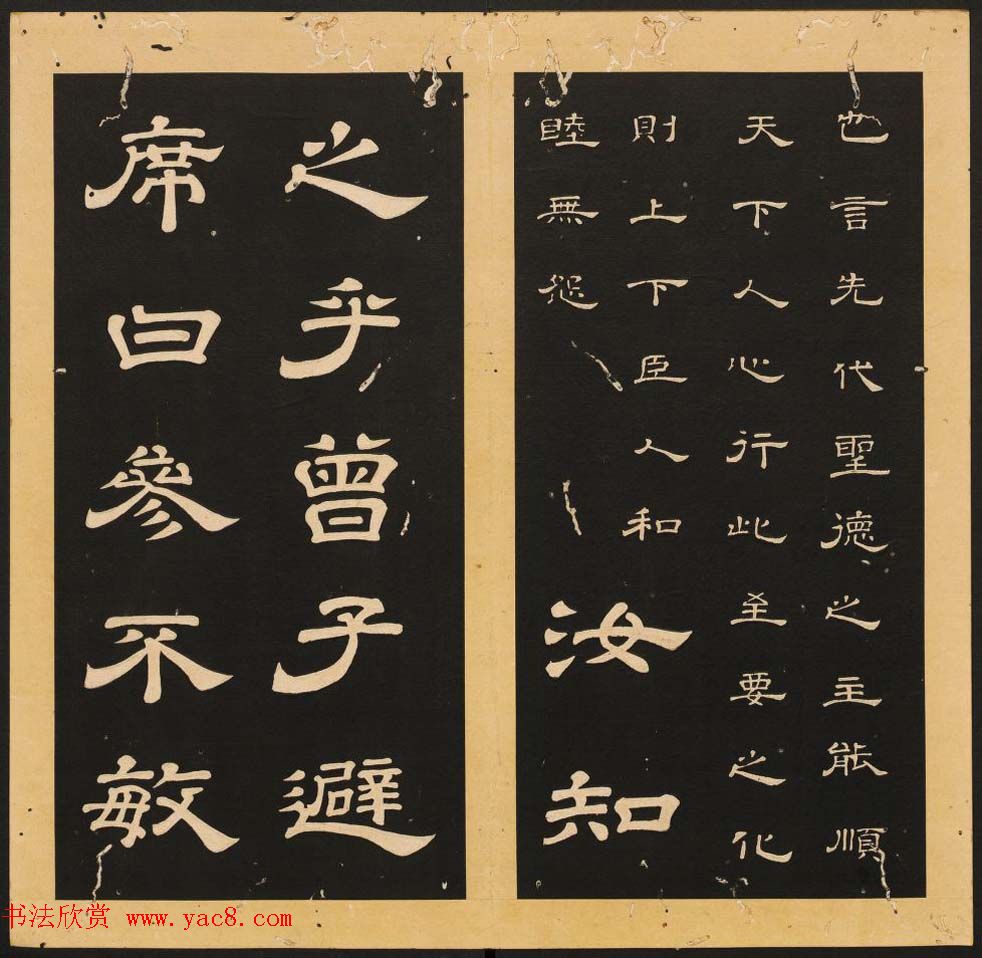 也言先代聖德之主能順
天下人心行此至要之化
則上下臣人和
睦無怨汝知
之乎曾子避
席曰參不敏
书法欣赏 www.yac8.com